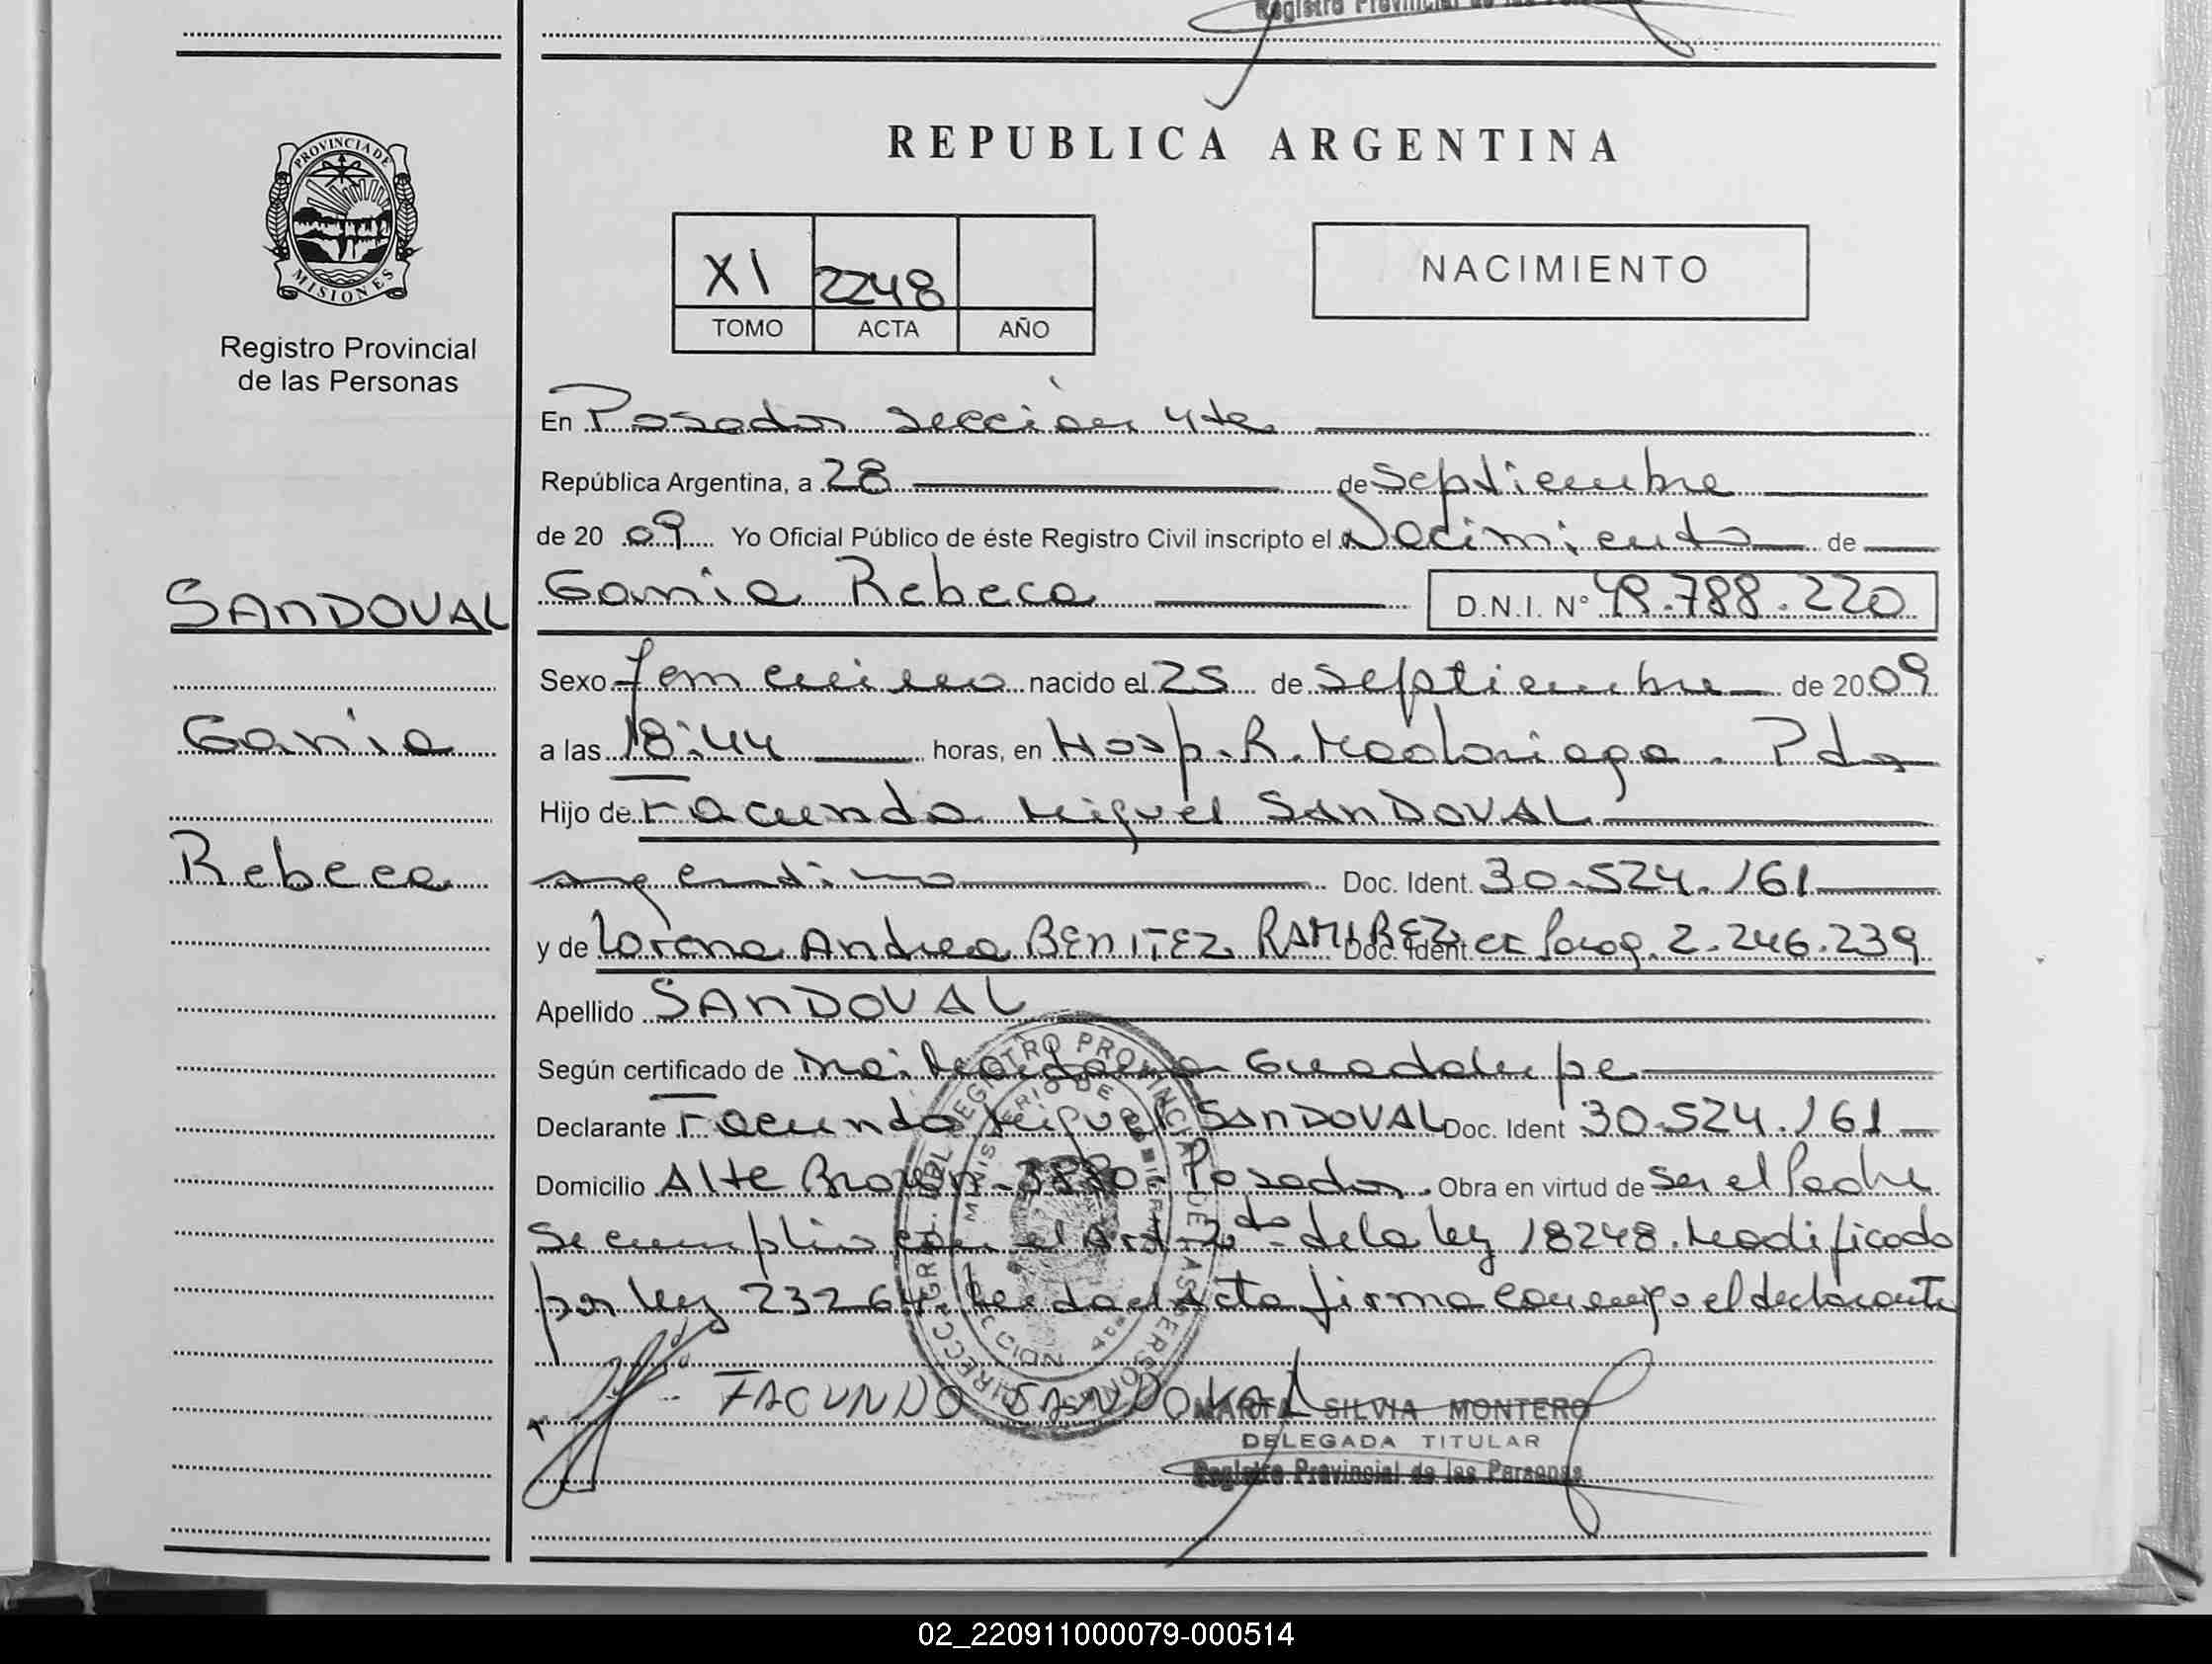 Registro Provincial de las Personas
PROVINCIA DE
MISIONES
Registro Provincial
de las Personas
SANDOVAL
Gania
Rebeca
REPUBLICA ARGENTINA
XI 2248
TOMO ACTA AÑO
NACIMIENTO
En Posadas sección 4ta
República Argentina, a 28 de septiembre
de 20 09 Yo Oficial Público de éste Registro Civil inscripto el Nacimiento de
Gania Rebeca D.N.I. Nº 49.788.220
Sexo femenino nacido el 25 de septiembre de 20 09
a las 18:44 horas, en Hosp. R. Madariaga. Pdas
Hijo de Facundo Miguel SANDOVAL
argentino Doc. Ident. 30.524.161
y de Lorena Andrea BENITEZ RAMIREZ Doc. Ident. CI Parag. 2.246.239
Apellido SANDOVAL
Según certificado de Guadalupe
Declarante Facundo Miguel SANDOVAL Doc. Ident 30.524.161
Domicilio Alte Brown 3880 Posadas. Obra en virtud de ser el Padre
Se cumplio con el Art 2do de la ley 18248. Modificado
por ley 23264. Leida el Acta firma conmigo el declarante
FACUNDO SANDOVAL
MARTA SILVIA MONTERO
DELEGADA TITULAR
Registro Provincial de las Personas
02_220911000079-000514